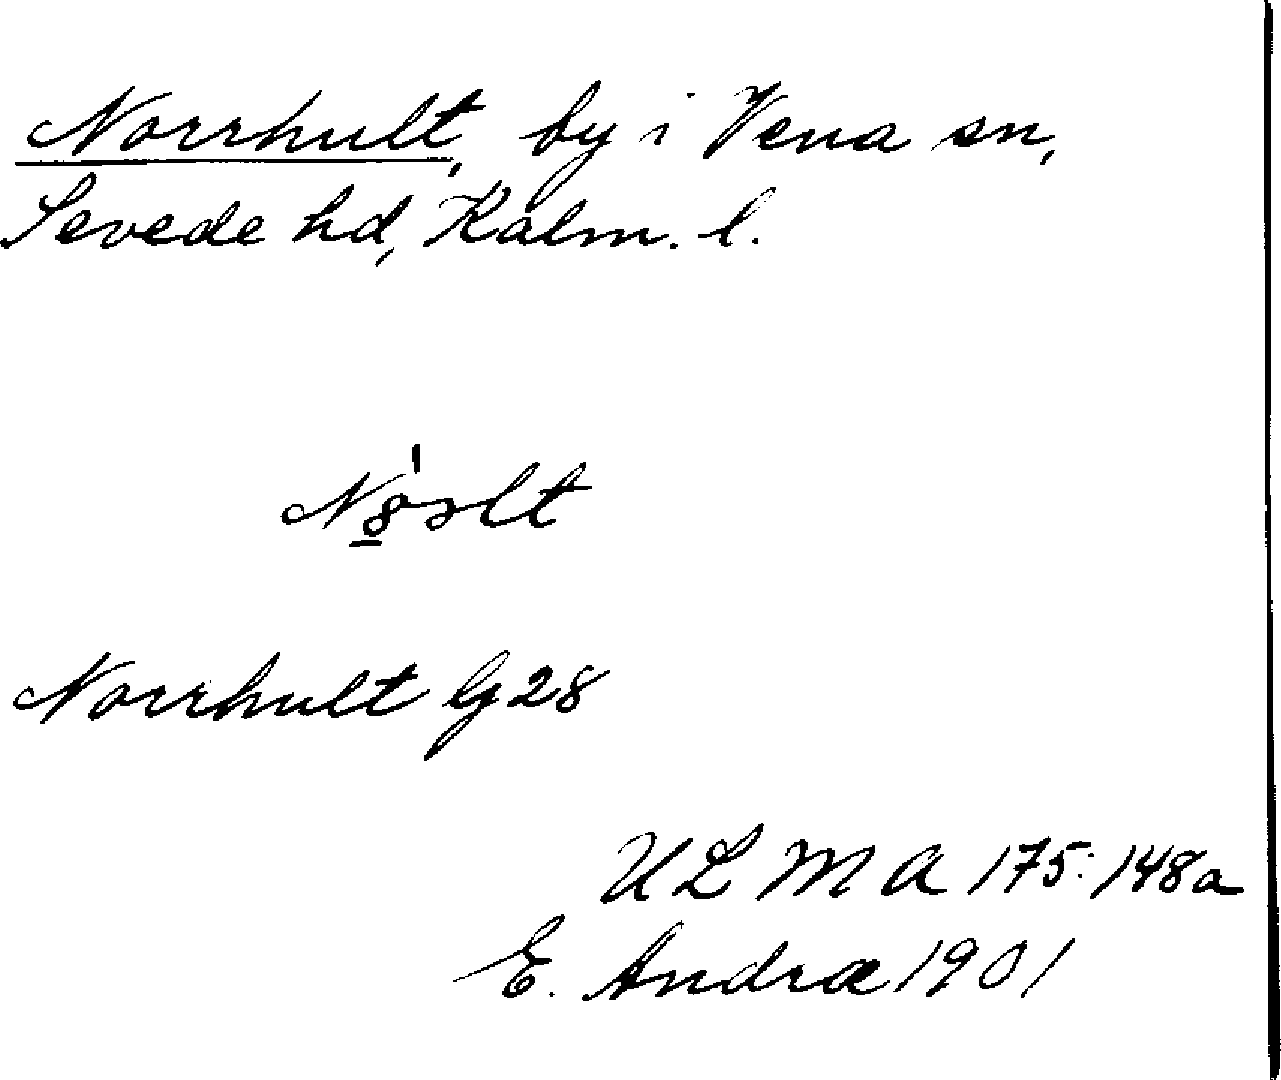 Norrhult, by i Vena sn,
Sevede hd, Kalm. l.
Norrhult G 28
ULMA 175:148a
E. Andræ 1901